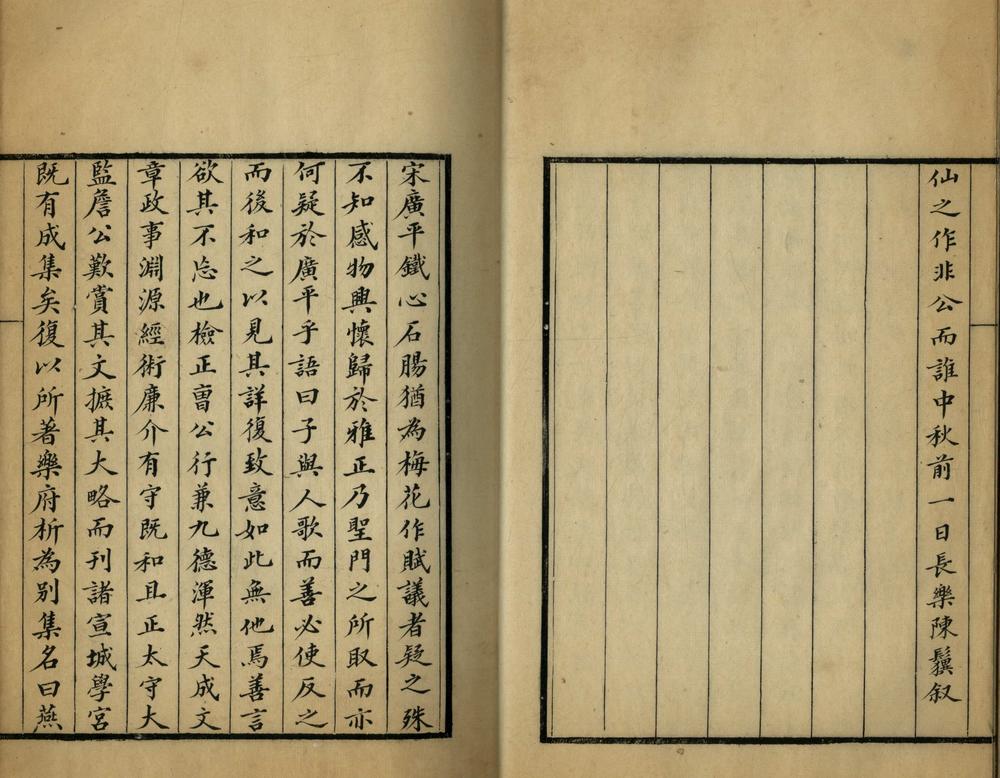 仙之作非公而誰中秋前一日長樂陳鬚叙
宋廣平鐵心石腸猶為梅花作賦議者疑之殊
不知感物興懷歸於雅正乃聖門之所取而亦
何疑於廣平乎語曰子與人歌而善必使反之
而後和之以見其詳復致意如此無他焉善言
欲其不忘也檢正曺公行兼九德渾然天成文
章政事淵源經術廉介有守既和且正太守大
監詹公歎賞其文摭其大略而刊諸宣城學宮
既有成集矣復以所著樂府析為別集名曰燕